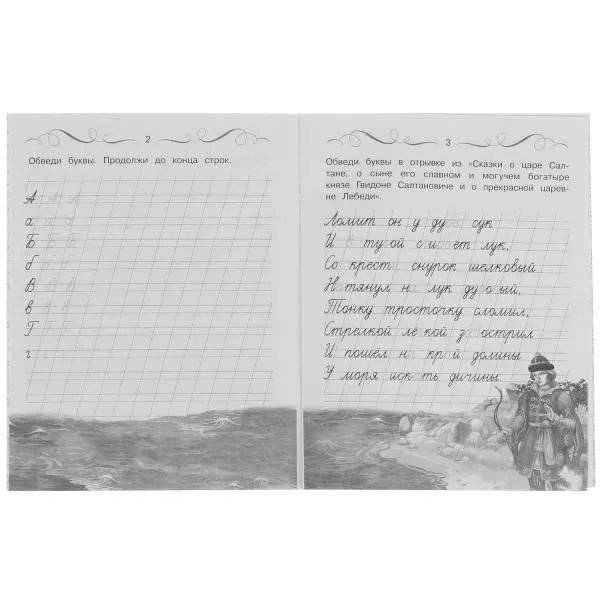 2
Обведи буквы. Продолжи до конца строк.
А А А
а а а
Б Б Б
б б б
В В В
в в в
Г Г Г
г
3
Обведи буквы в отрывке из «Сказки о царе Сал-
тане, о сыне его славном и могучем богатыре
князе Гвидоне Салтановиче и о прекрасной царев-
не Лебеди».
Ломит он у дуба сук
И в тугой сгибает лук,
Со креста снурок шелковый
Натянул на лук дубовый,
Тонку тросточку сломил,
Стрелкой легкой завострил
И пошёл на край долины
У моря искать дичины.